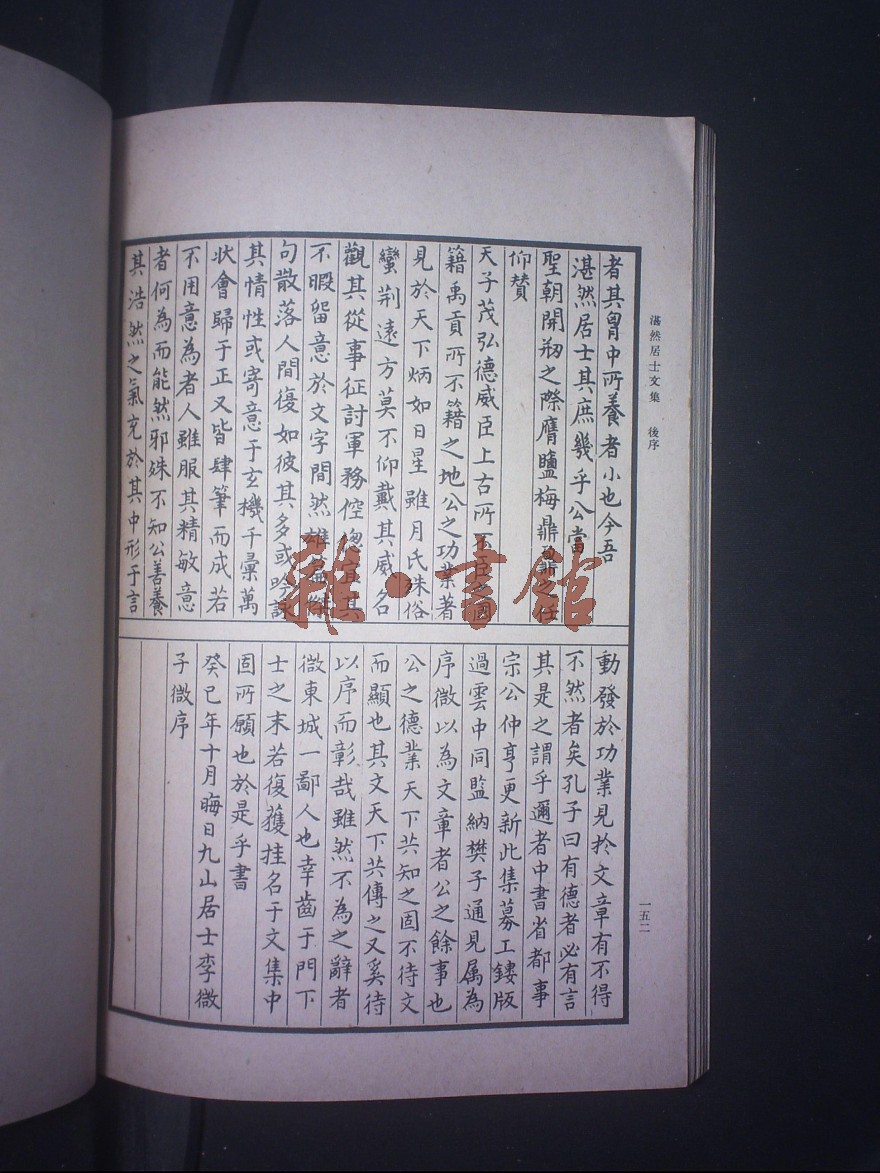 湛然居士文集 後序
者其胷中所養者小也今吾
湛然居士其庶幾乎公當
聖朝開剏之際膺鹽梅鼎鼐之任
仰賛
天子茂弘德威臣上古所不臣之國
籍禹貢所不籍之地公之功業著
見於天下炳如日星雖月氏殊俗
蠻荆遠方莫不仰戴其威名
觀其從事征討軍務倥偬宜其
不暇留意於文字間然雄篇
句散落人間復如彼其多或吟詠
其情性或寄意于玄機千彙萬
狀會歸于正又皆肆筆而成若
不用意為者人雖服其精敏意
者何為而能然邪殊不知公善養
其浩然之氣充於其中形于言
動發於功業見於文章有不得
不然者矣孔子曰有德者必有言
其是之謂乎邇者中書省都事
宗公仲亨更新此集募工鏤版
過雲中同監納樊子通見属為
序微以為文章者公之餘事也
公之德業天下共知之固不待文
而顯也其文天下共傳之又奚待
以序而彰哉雖然不為之辭者
微東城一鄙人也幸齒于門下
士之末若復獲挂名于文集中
固所願也於是乎書
癸巳年十月晦日九山居士李微
子微序
一五二
雜·書館